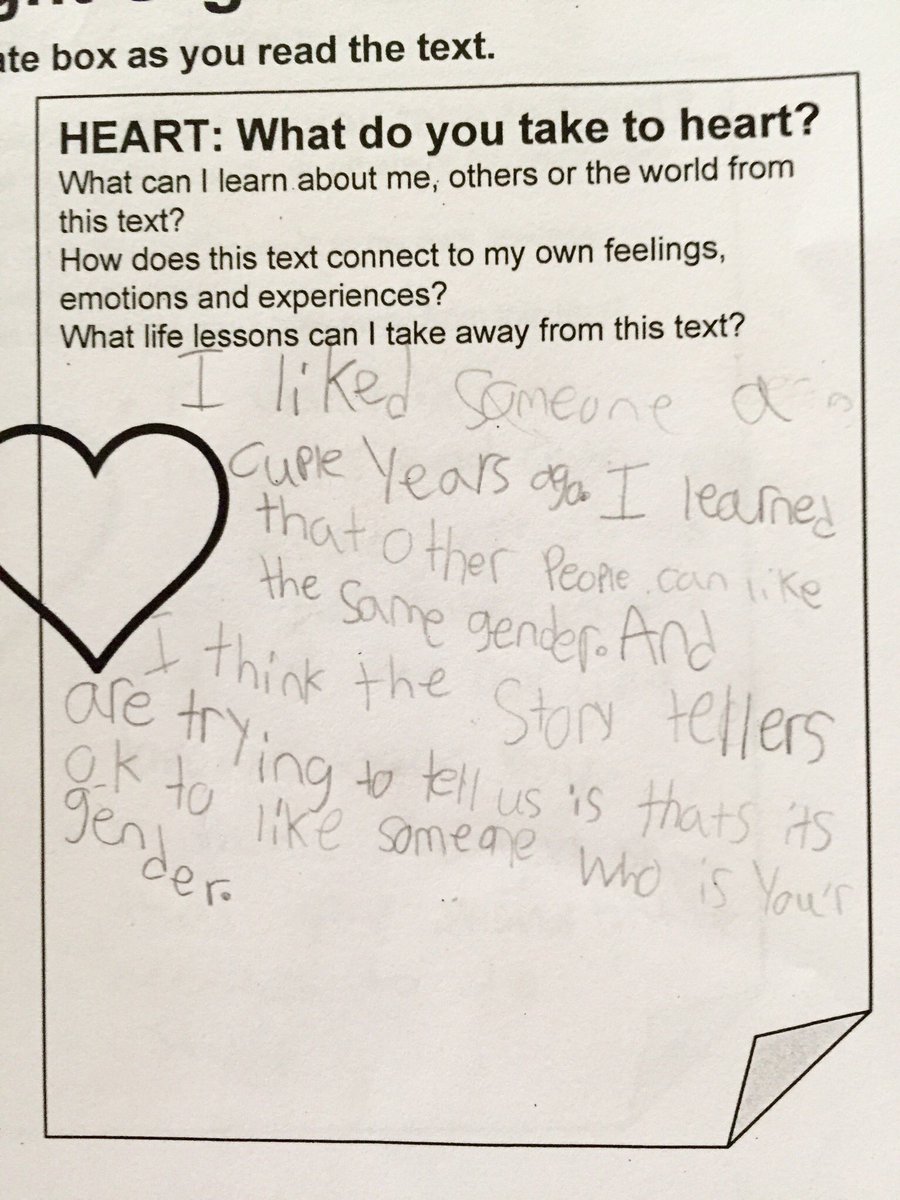 ate box as you read the text.
HEART: What do you take to heart?
What can I learn about me, others or the world from
this text?
How does this text connect to my own feelings,
emotions and experiences?
What life lessons can I take away from this text?
I liked someone a
cuple Years ago. I learned
that other People can like
the same gender. And
I think the Story tellers
are trying to tell us is thats its
o.k to like someone who is You'r
gender.